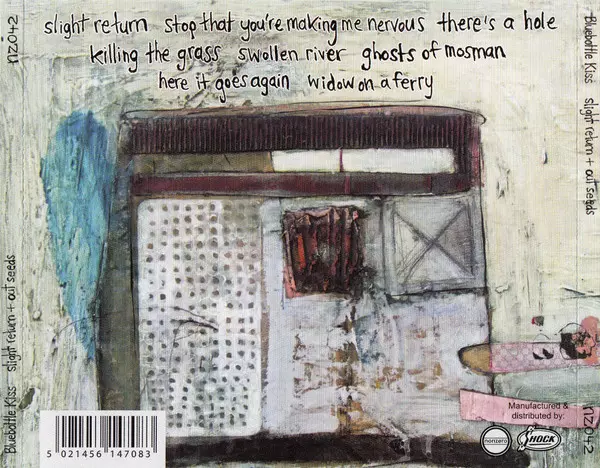 slight return stop that you're making me nervous there's a hole
killing the grass swollen river ghosts of mosman
here it goes again widow on a ferry
nz042
Bluebottle Kiss slight return + out seeds
Bluebottle Kiss slight return + out seeds
nz042
Manufactured &
distributed by:
nonzero
SHOCK
5 021456 147083